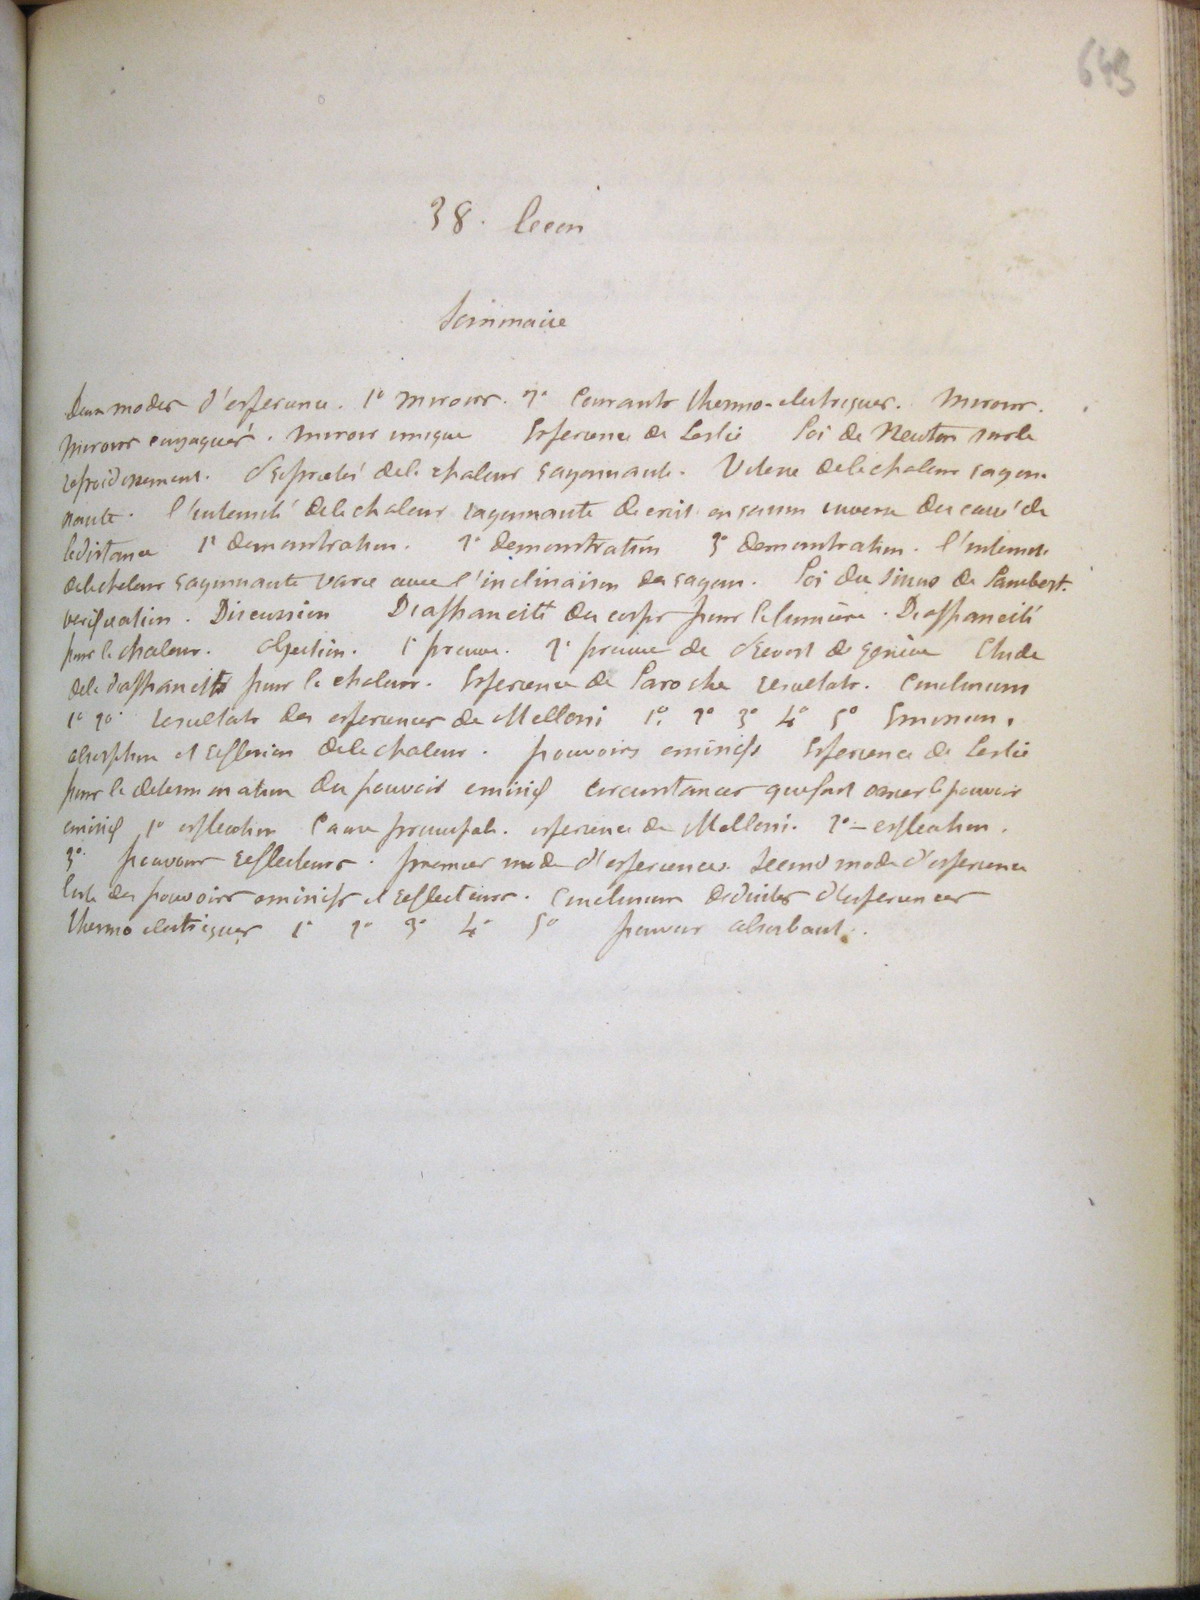 643
38. Lecon
Sommaire
Deux modes d'experience. 1° Miroirs. 2° Courants thermo-electriques. Miroirs.
Miroirs conjugués. Miroir unique Experience de Leslie Loi de Newton sur le
refroidissement. Proprietés de la chaleur rayonnante. Vitesse de la chaleur rayon-
nante. l'intensité de la chaleur rayonnante decroit en raison inverse du carré de
la distance 1e demonstration. 2e demonstration 3e demonstration. l'intensité
de la chaleur rayonnante varie avec l'inclinaison des rayons. Loi du sinus de Lambert.
verification. Discussion Diaphaneité des corps pour la lumière. Diaphaneité
pour la chaleur. Objection. 1e preuve. 2e preuve de Prevost de Genève Etude
de la diaphaneité pour la chaleur. Experience de Laroche resultats. Conclusions
1° 2° resultats des experiences de Melloni 1° 2° 3° 4° 5° Emission,
absorption et reflexion de la chaleur. pouvoirs emissifs Experience de Leslie
pour la determination du pouvoir emissif circonstances qui font varier le pouvoir
emissif 1° explication Cause principale. experience de Melloni. 2° - explication.
3° pouvoirs reflecteurs. premier mode d'experiences. Second mode d'experience
des pouvoirs emissifs et reflecteurs. Conclusions deduites d'experiences
thermo electriques 1° 2° 3° 4° 5° pouvoir absorbant.